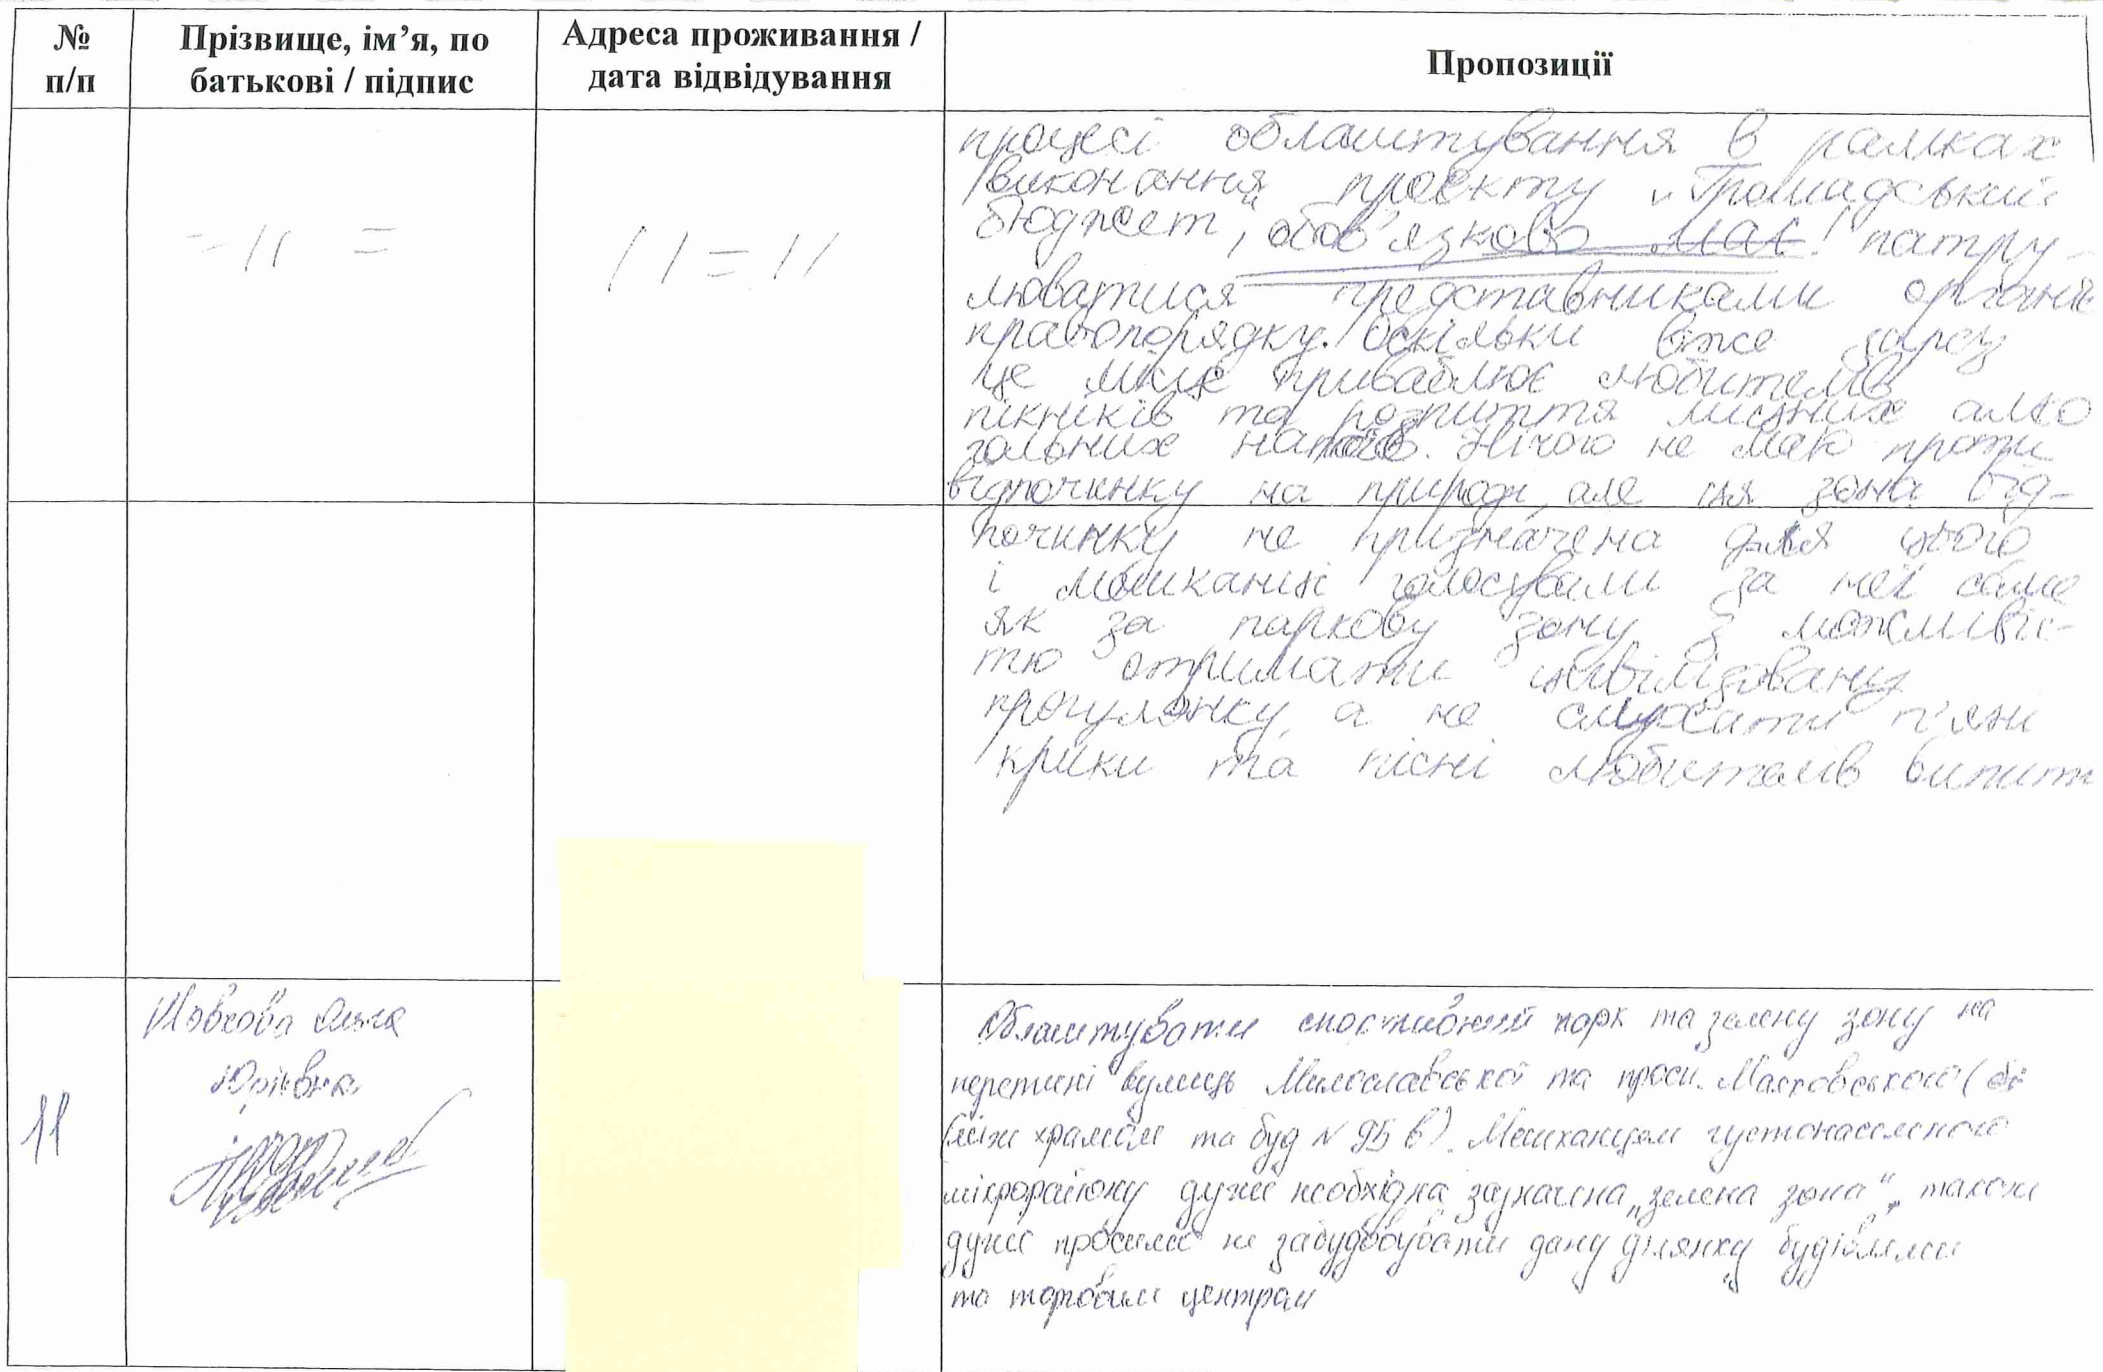 № п/п
Прізвище, ім’я, по батькові / підпис
Адреса проживання / дата відвідування
Пропозиції
-//- =
// = //
процесі облаштування в рамках
виконання проєкту „Громадський
бюджет", обов'язково має! патру-
люватися представниками органів
правопорядку. Оскільки вже зараз
це місце приваблює любителів
пікніків та розпиття міцних алко
гольних напоїв. Нічого не маю проти
відпочинку на природі, але ця зона від-
починку не призначена для цього
і мешканці голосували за неї саме
як за паркову зону з можливіс-
тю отримати цивілізовану
прогулянку, а не слухати п'яні
крики та пісні любителів випити
11
Юріївна
Облаштувати спортивний парк та зелену зону на
перетині вулиць Милославської та просп. Маяковського (
між храмом та буд № 95 в). Мешканцям густонаселеного
мікрорайону дуже необхідна зазначена „зелена зона", також
дуже просимо не забудовувати дану ділянку будівлями
та торговим центрам